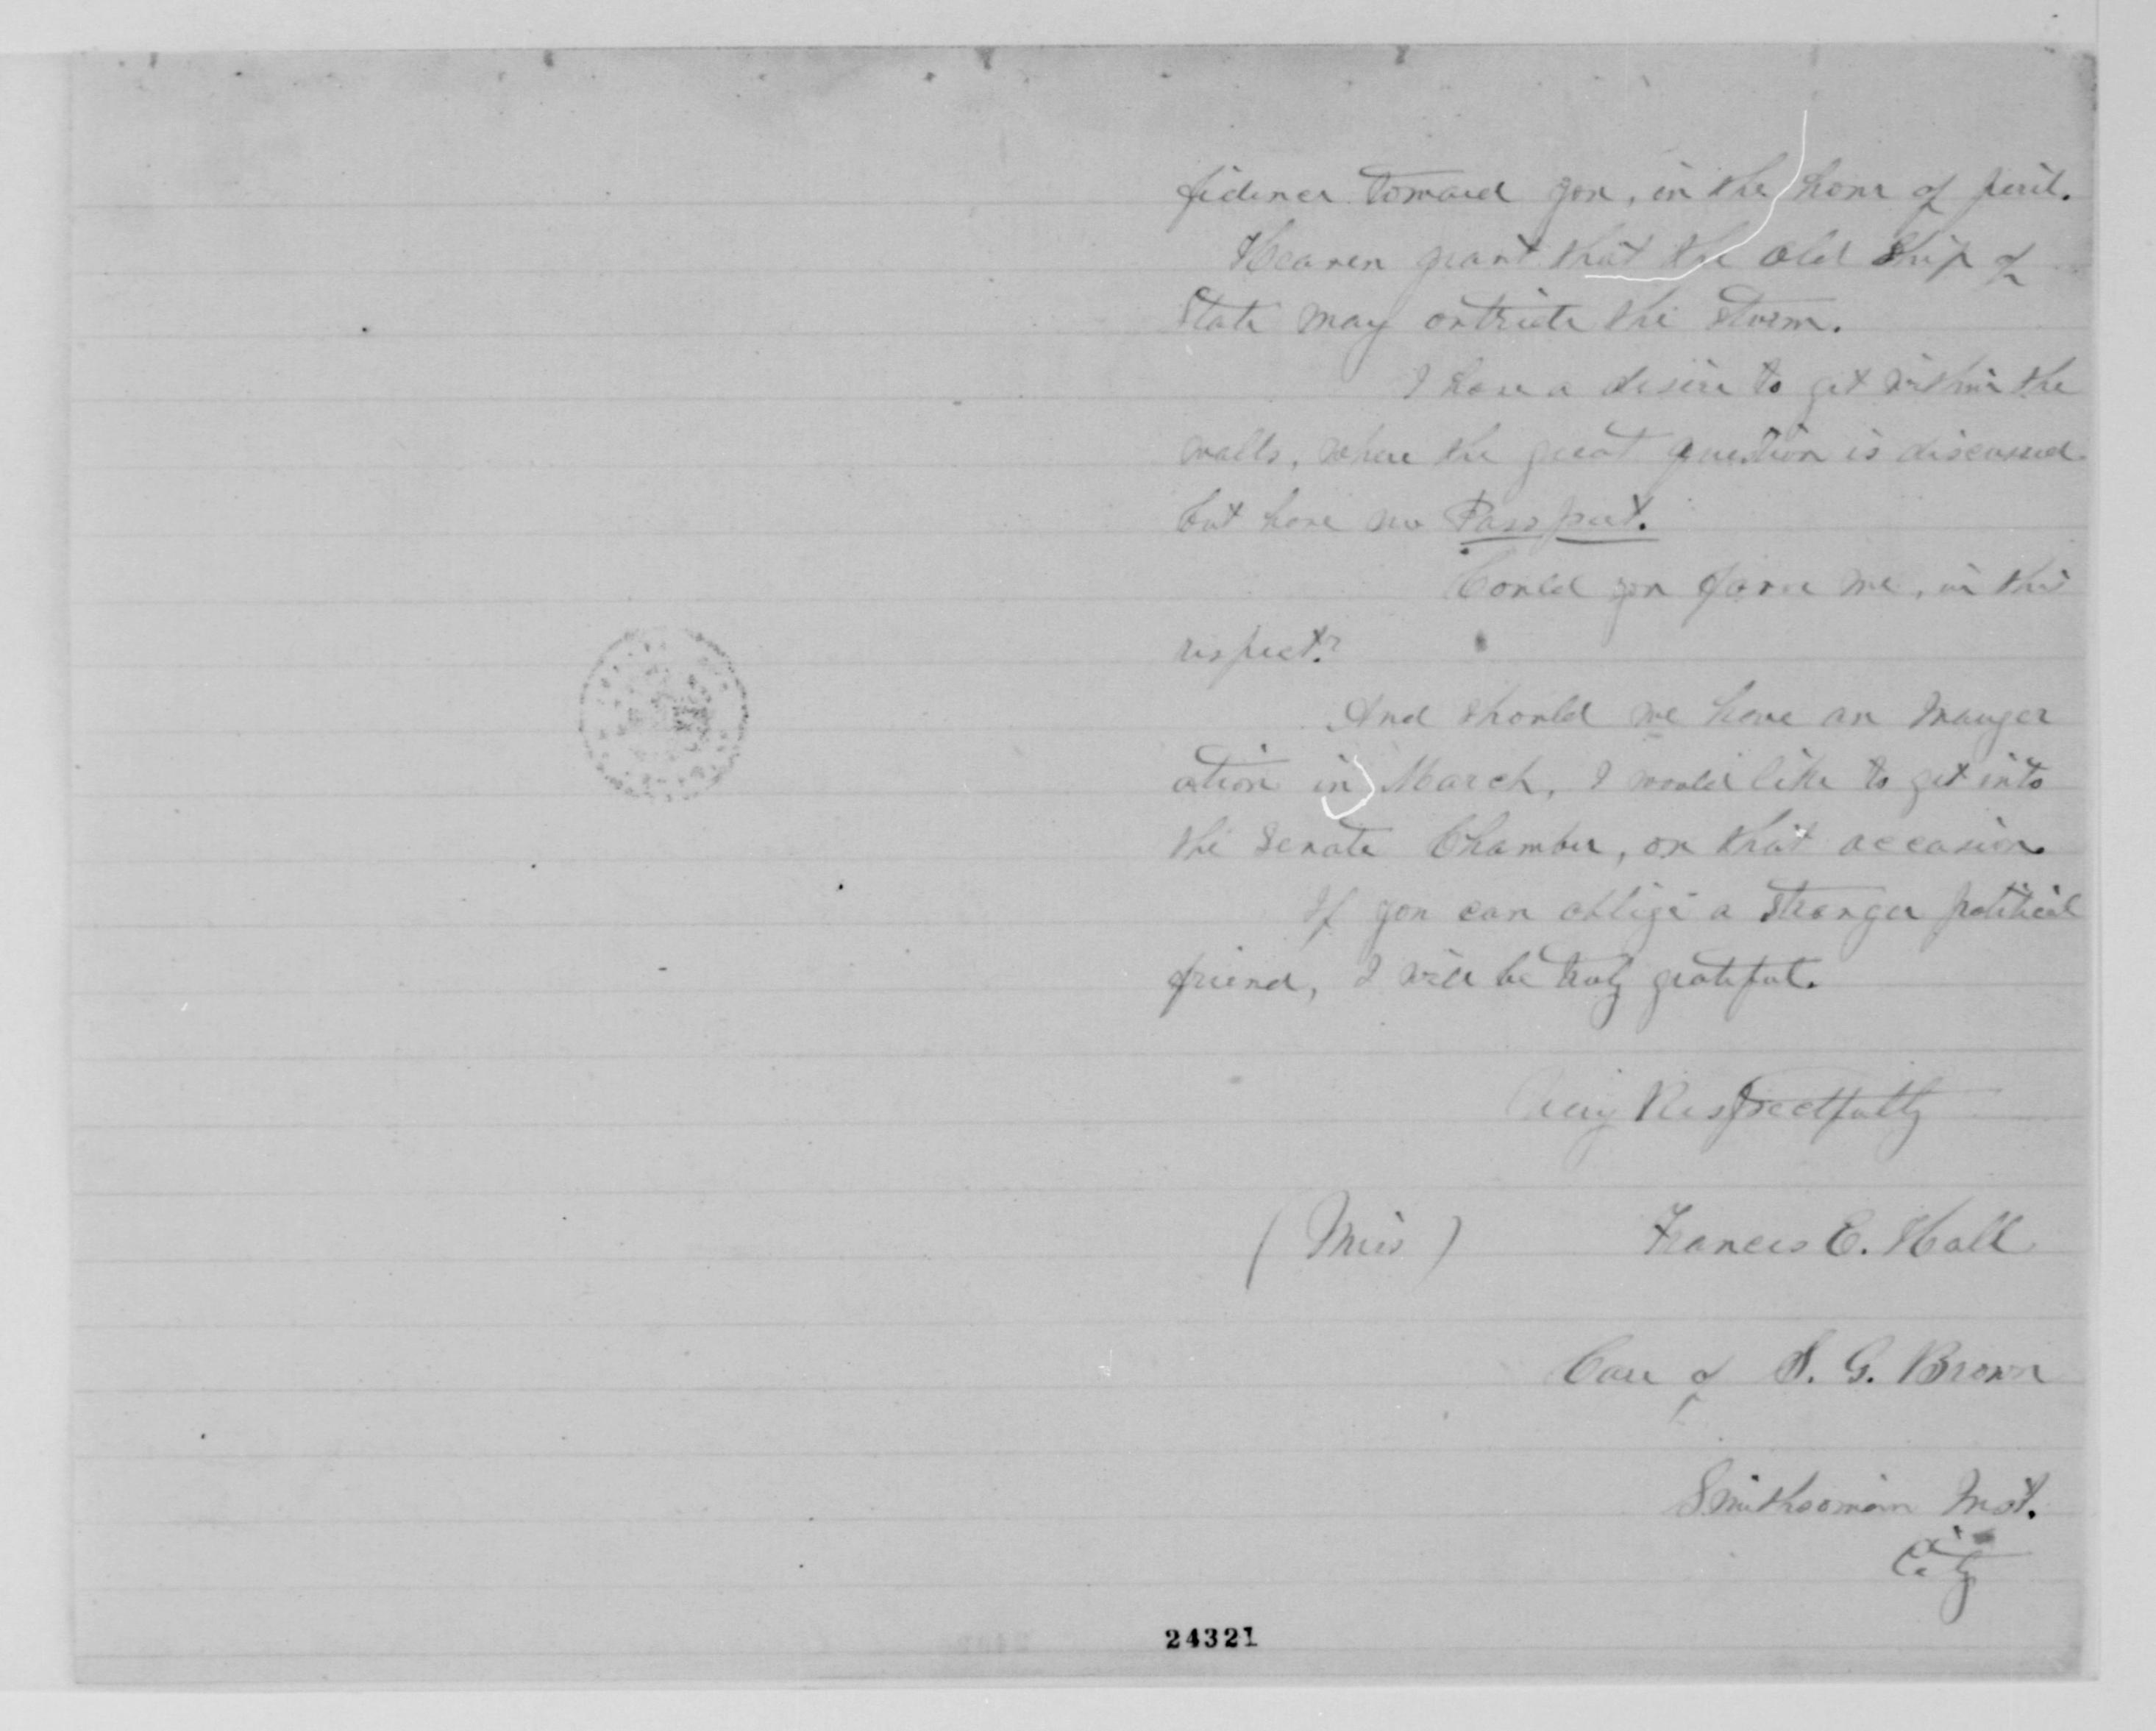 fidence toward you, in the hour of peril.
Heaven grant that the old Ship of
State may outride the storm.
I have a desire to get within the
walls, where the great question is discussed
but have no Passport.
Could you favor me, in this
respect?
And should we have an Inauger
ation in March, I would like to get into
the Senate Chamber, on that occasion.
If you can oblige a stranger political
friend, I will be truly grateful.
Very Respectfully
(Miss) Frances E. Hall
Care of S. G. Brown
Smithsonian Inst.
City
24321